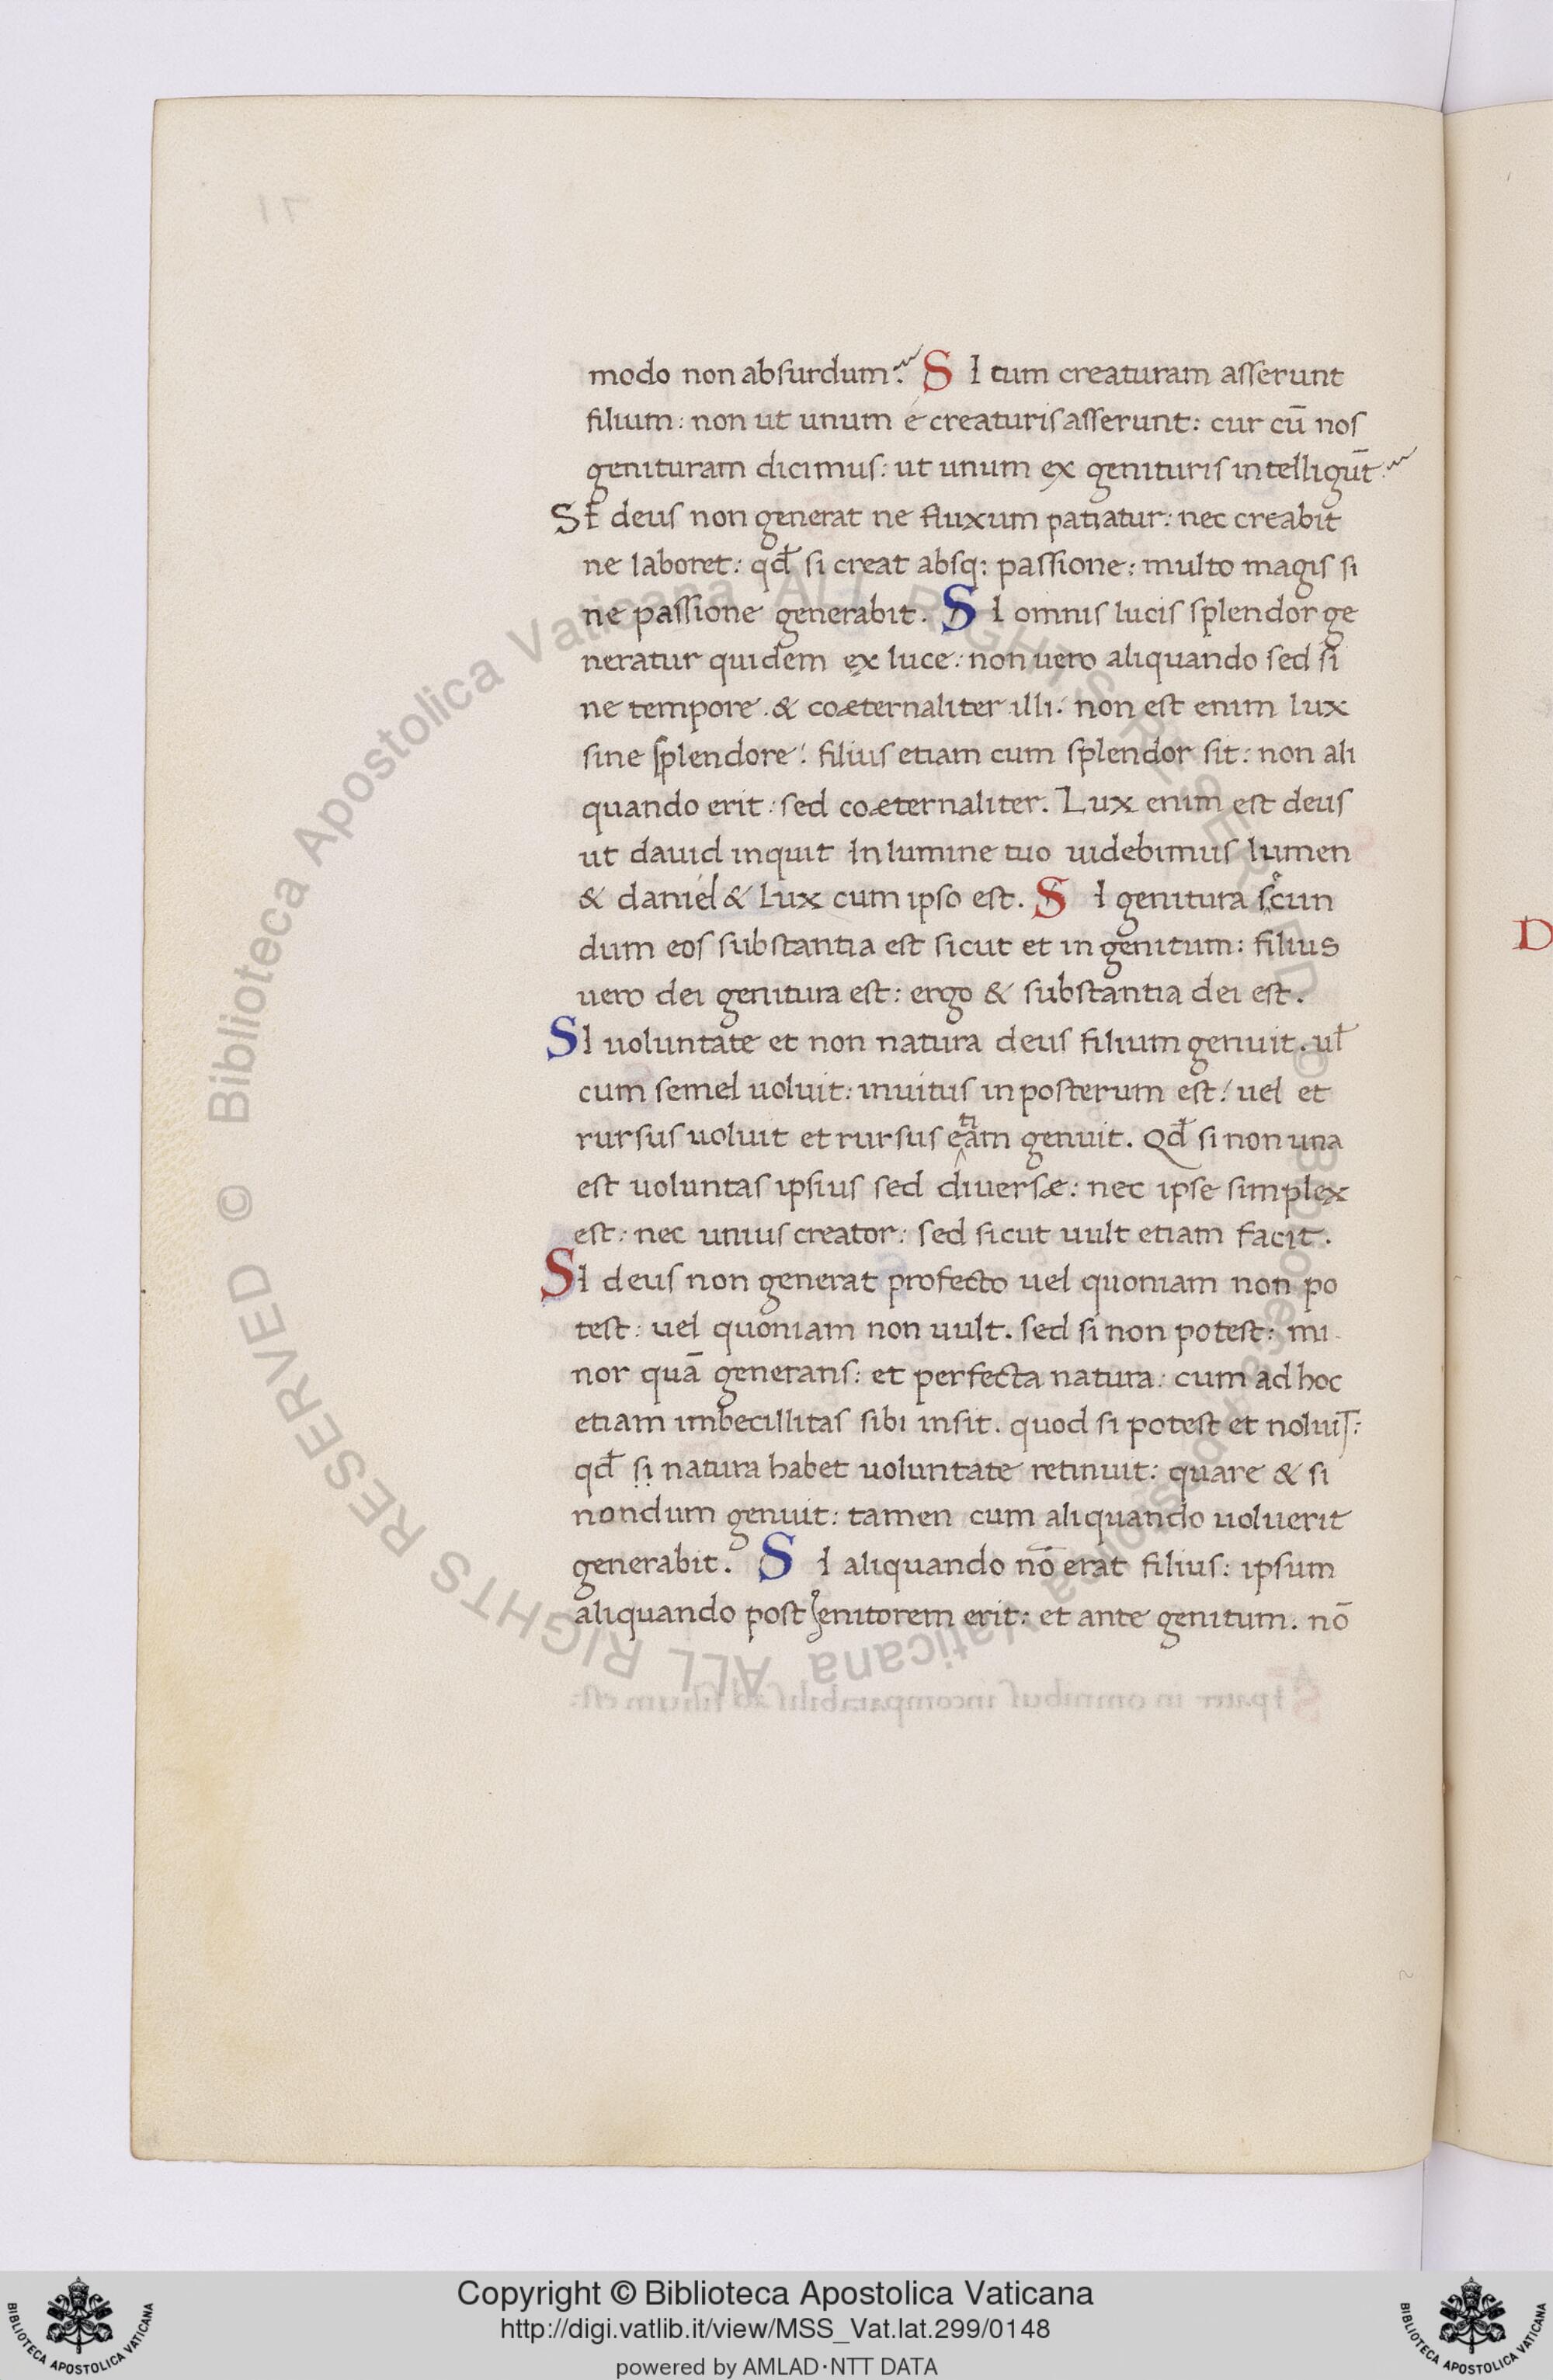 modo non absurdum? SI cum creaturam asserunt
filium: non ut unum é creaturis asserunt: cur cū nos
genituram dicimus: ut unum ex genituris intelligūt?
SI deus non generat ne fluxum patiatur: nec creabit
ne laboret: qđ si creat absq; passione: multo magis si
ne passione generabit. SI omnis lucis splendor ge
neratur quidem ex luce: non uero aliquando sed si
ne tempore. & coæternaliter illi: non est enim lux
sine splendore: filius etiam cum splendor sit: non ali
quando erit: sed coæternaliter. Lux enim est deus
ut dauid inquit In lumine tuo uidebimus lumen
& daniel & Lux cum ipso est. SI genitura secun
dum eos substantia est sicut et ingenitum: filius
uero dei genitura est: ergo & substantia dei est.
SI uoluntate et non natura deus filium genuit. uł
cum semel uoluit: inuitus in posterum est: uel et
rursus uoluit et rursus etiam genuit. Qđ si non una
est uoluntas ipsius sed diuersæ: nec ipse simplex
est: nec unius creator: sed sicut uult etiam facit.
SI deus non generat profecto uel quoniam non po
test: uel quoniam non uult. sed si non potest: mi
nor quā generans: et perfecta natura: cum ad hoc
etiam imbecillitas sibi insit. quod si potest et noluit:
qđ si natura habet uoluntate retinuit: quare & si
nondum genuit: tamen cum aliquando uoluerit
generabit. SI aliquando nō erat filius: ipsum
aliquando post genitorem erit: et ante genitum. nō
Copyright © Biblioteca Apostolica Vaticana
http://digi.vatlib.it/view/MSS_Vat.lat.299/0148
powered by AMLAD·NTT DATA
BIBLIOTECA APOSTOLICA VATICANA
BIBLIOTECA APOSTOLICA VATICANA
© Biblioteca Apostolica Vaticana ALL RIGHTS RESERVED © Biblioteca Apostolica Vaticana ALL RIGHTS RESERVED
D